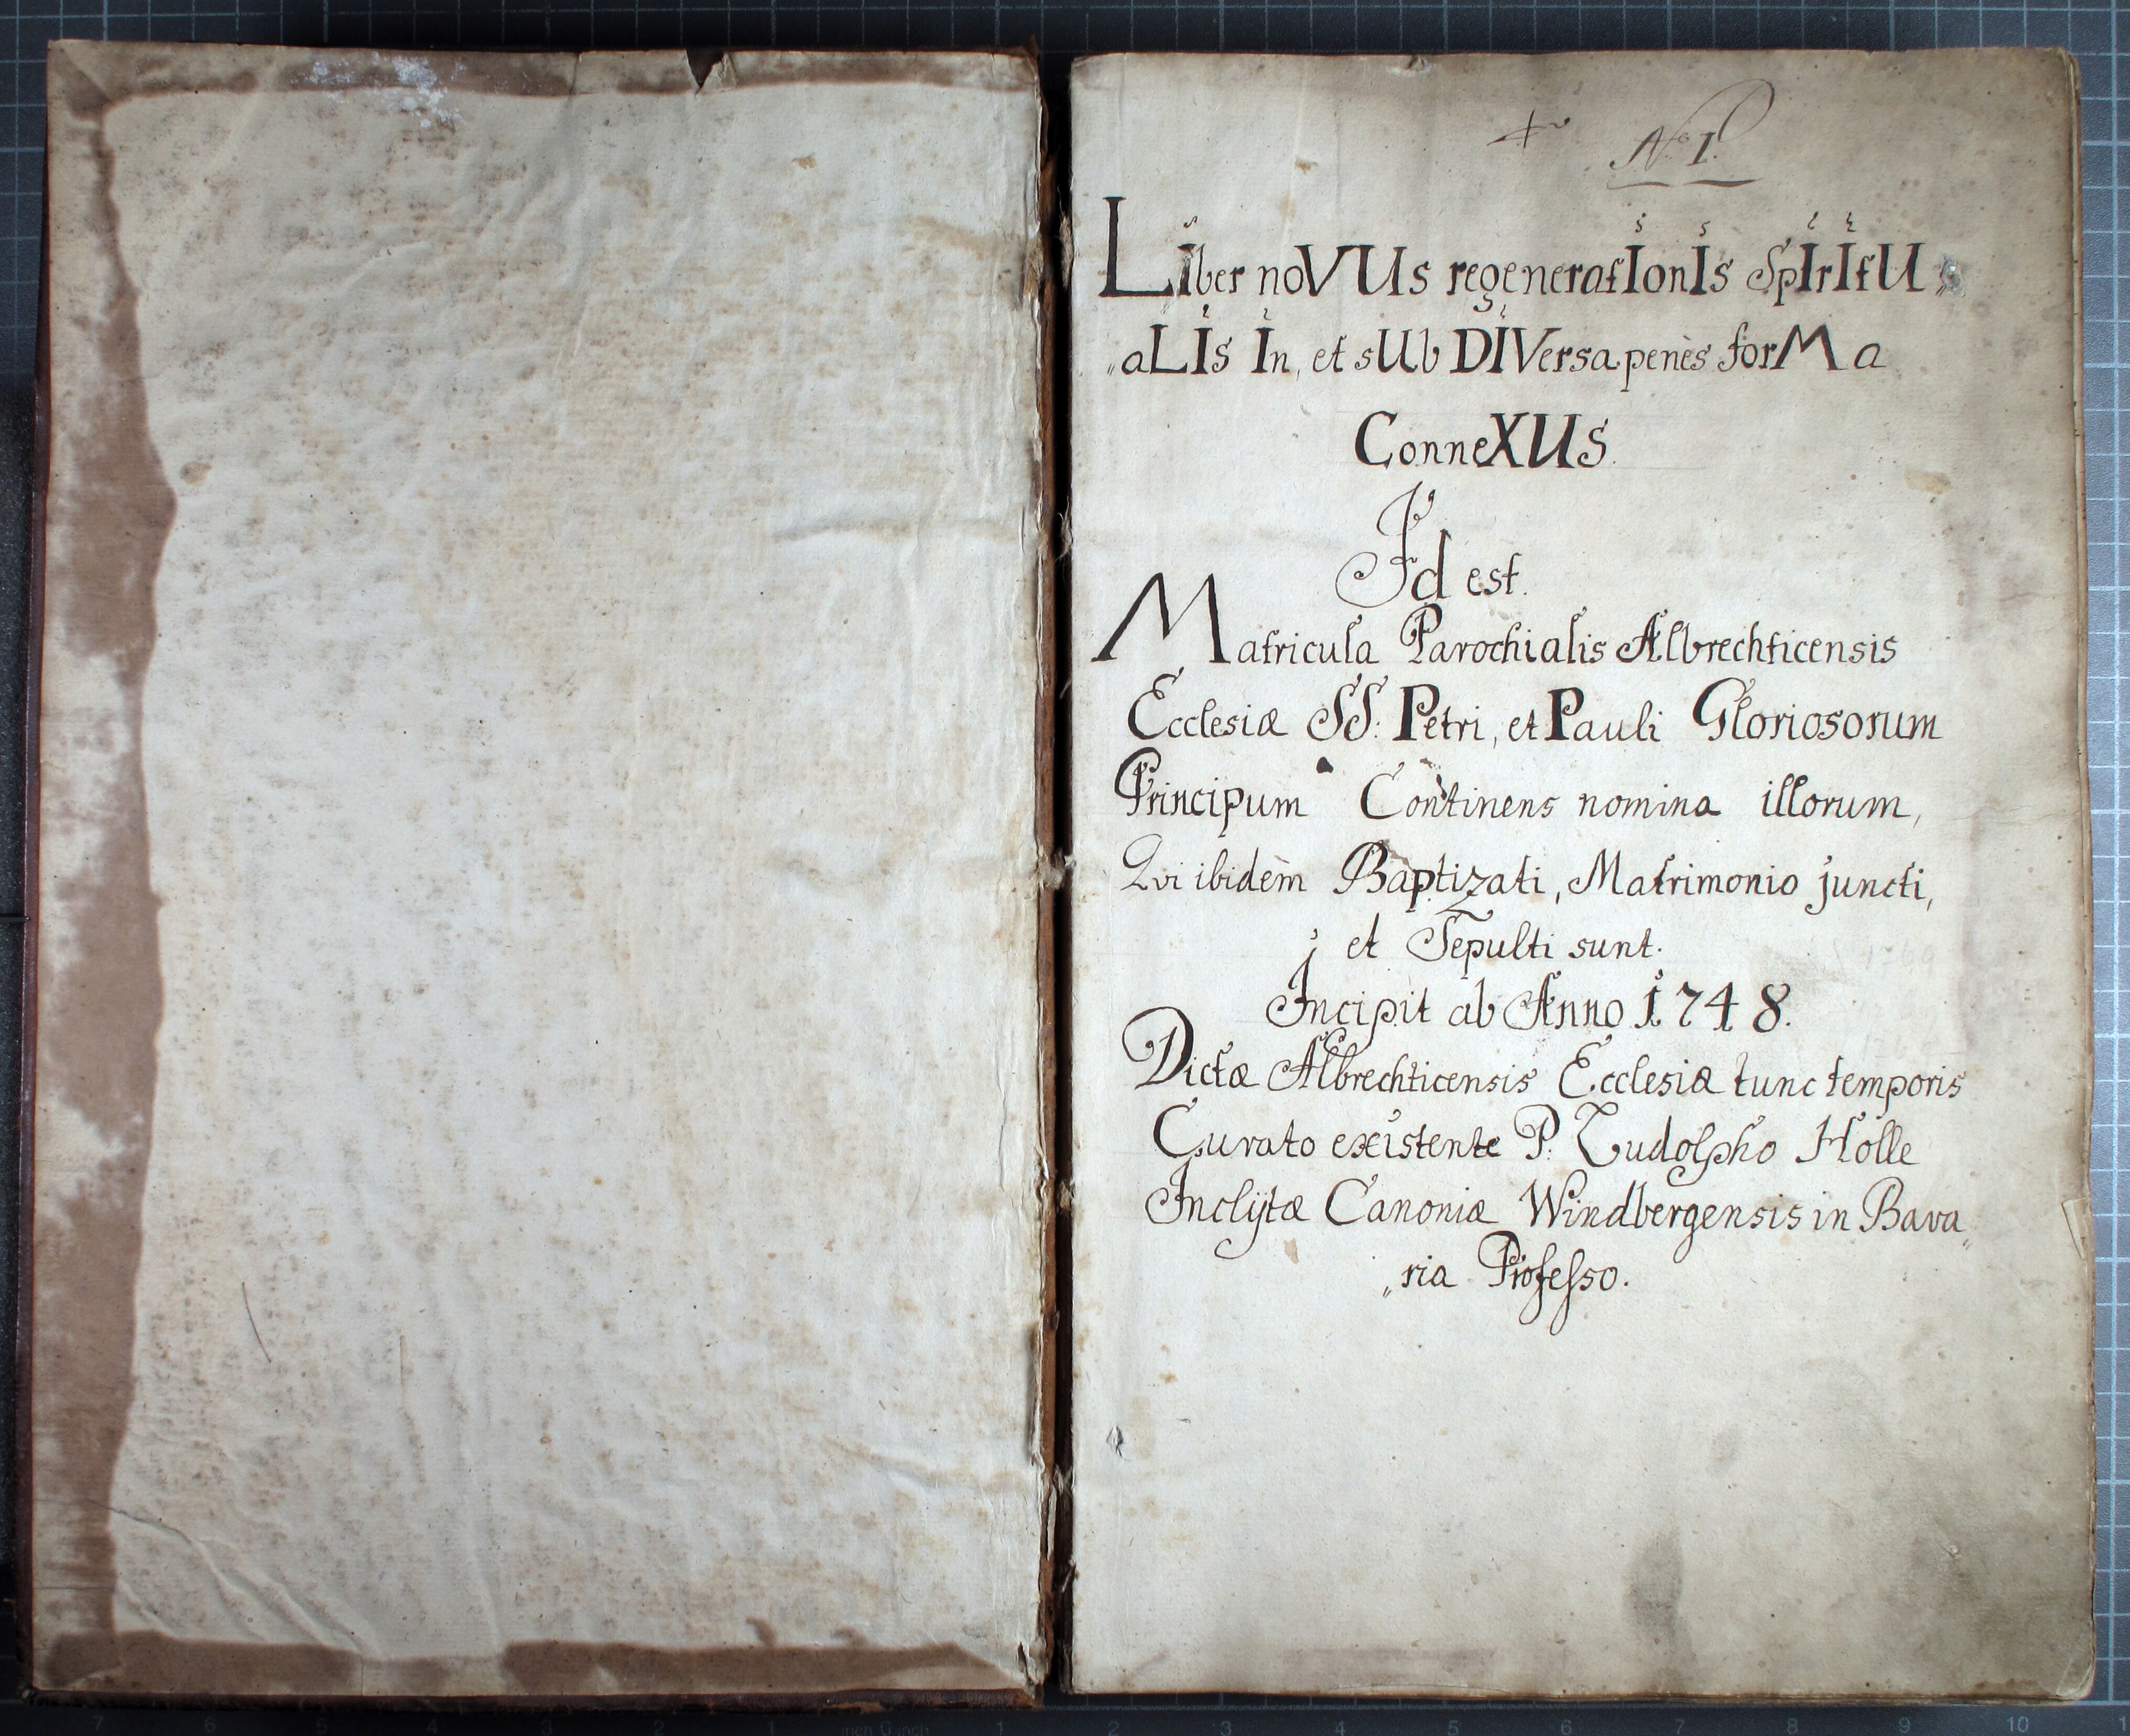 N.º 1.
LIber noVUs regeneratIonIs SpIrItU„
„aLIs In, et sUb DIVersa penès forMa
ConneXUs.
Id est.
Matricula Parochialis Albrechticensis
Ecclesiæ SS: Petri, et Pauli Gloriosorum
Principum Continens nomina illorum,
Qvi ibidèm Baptizati, Matrimonio juncti,
et Sepulti sunt.
Incipit ab Anno 1748.
Dictæ Albrechticensis Ecclesiæ tunc temporis
Curato existente P. Ludolpho Holle
Inclÿtæ Canoniæ Windbergensis in Bava„
„ria Profeſso.
7 6 5 4 3 2 1 inch 0 inch 1 2 3 4 5 6 7 8 9 10